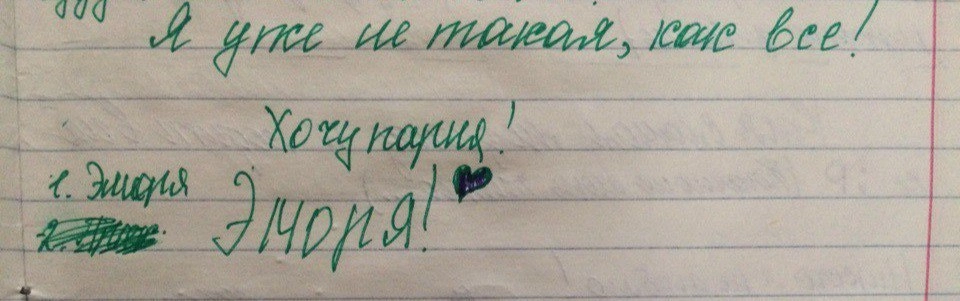 Я уже не такая, как все!
Хочу парня!
1. Эмаря
Эморя!